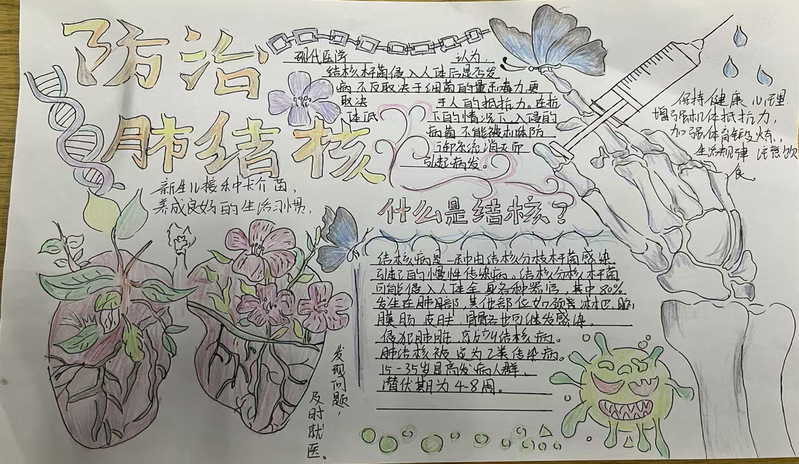 防治
肺结核
现代医学 认为,
结核杆菌侵入人体后是否发
病不仅取决于细菌的量和毒力,更
取决 于人的抵抗力。在抗
体低 下的情况下,入侵的
病菌不能被机体防
御系统消灭而
引起病发。
保持健康心理
增强机体抵抗力,
加强体育锻炼,
生活规律 注意饮
食
新生儿接种卡介苗,
养成良好的生活习惯.
什么是结核?
结核病是一种由结核分枝杆菌感染
引起的慢性传染病。结核分枝杆菌
可能侵入人体全身各种器官,其中80%
发生在肺部,其他部位如颈淋巴,脑
膜肠 皮肤、骨骼也可继发感染。
侵犯肺脏
肺结核被 为乙类传染病。
15-35岁是高发病人群,
潜伏期为4-8周。
发现问题,
及时就医。